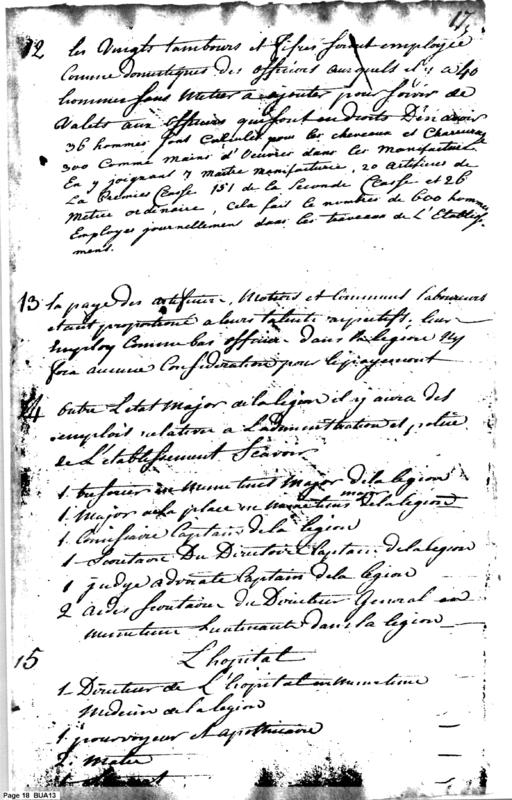 17.
12 les Vingts tambours et fifres seront employés
Comme domestiques des officiers auxquels il y a 40
hommes sans Metier a ajouter pour servir de
Valets aux officiers qui sont en droits D'en avoir
36 hommes sont Calculés pour les chevaux et Charrues
300 Comme mains d'Œuvrier dans les Manufactures
En y joignant 7 maitre manufacturie, 20 artifices de
La Premier Classe 151 de la Seconde Classe et 26
Metice ordinaire, Cela fait le nombres de 600 hommes
Employes journellement dans les travaux de L'Etablisse
ment.
13 la paye des artificier, Metiers et Communs laboureurs
etant proportioné a leurs talents respectifs, leur
Employ Comme bas officier dans la legion N'y
fera aucune Consideration pour le payement
14 outre L'etat Major de la legion il y aura des
emplois relative a L'administration et police
de L'etablissement Scavoir
1 tresorier en meme tems Major de la legion
1 Major de la place en meme tems de la legion
1 Comissaire Captain de la legion
1 Secretaire Du Directoire Captain de la legion
1 judge advocate Captain de la legion
2 aides Secretaire du Directeur General en
meme tems Lieutenants dans la legion
15 L'hopital
1 Directeur de L'hopital en meme tems
Medecin de la legion
1 pourvoyeur et apothicaire
2 Mates
Page 18 BUA13